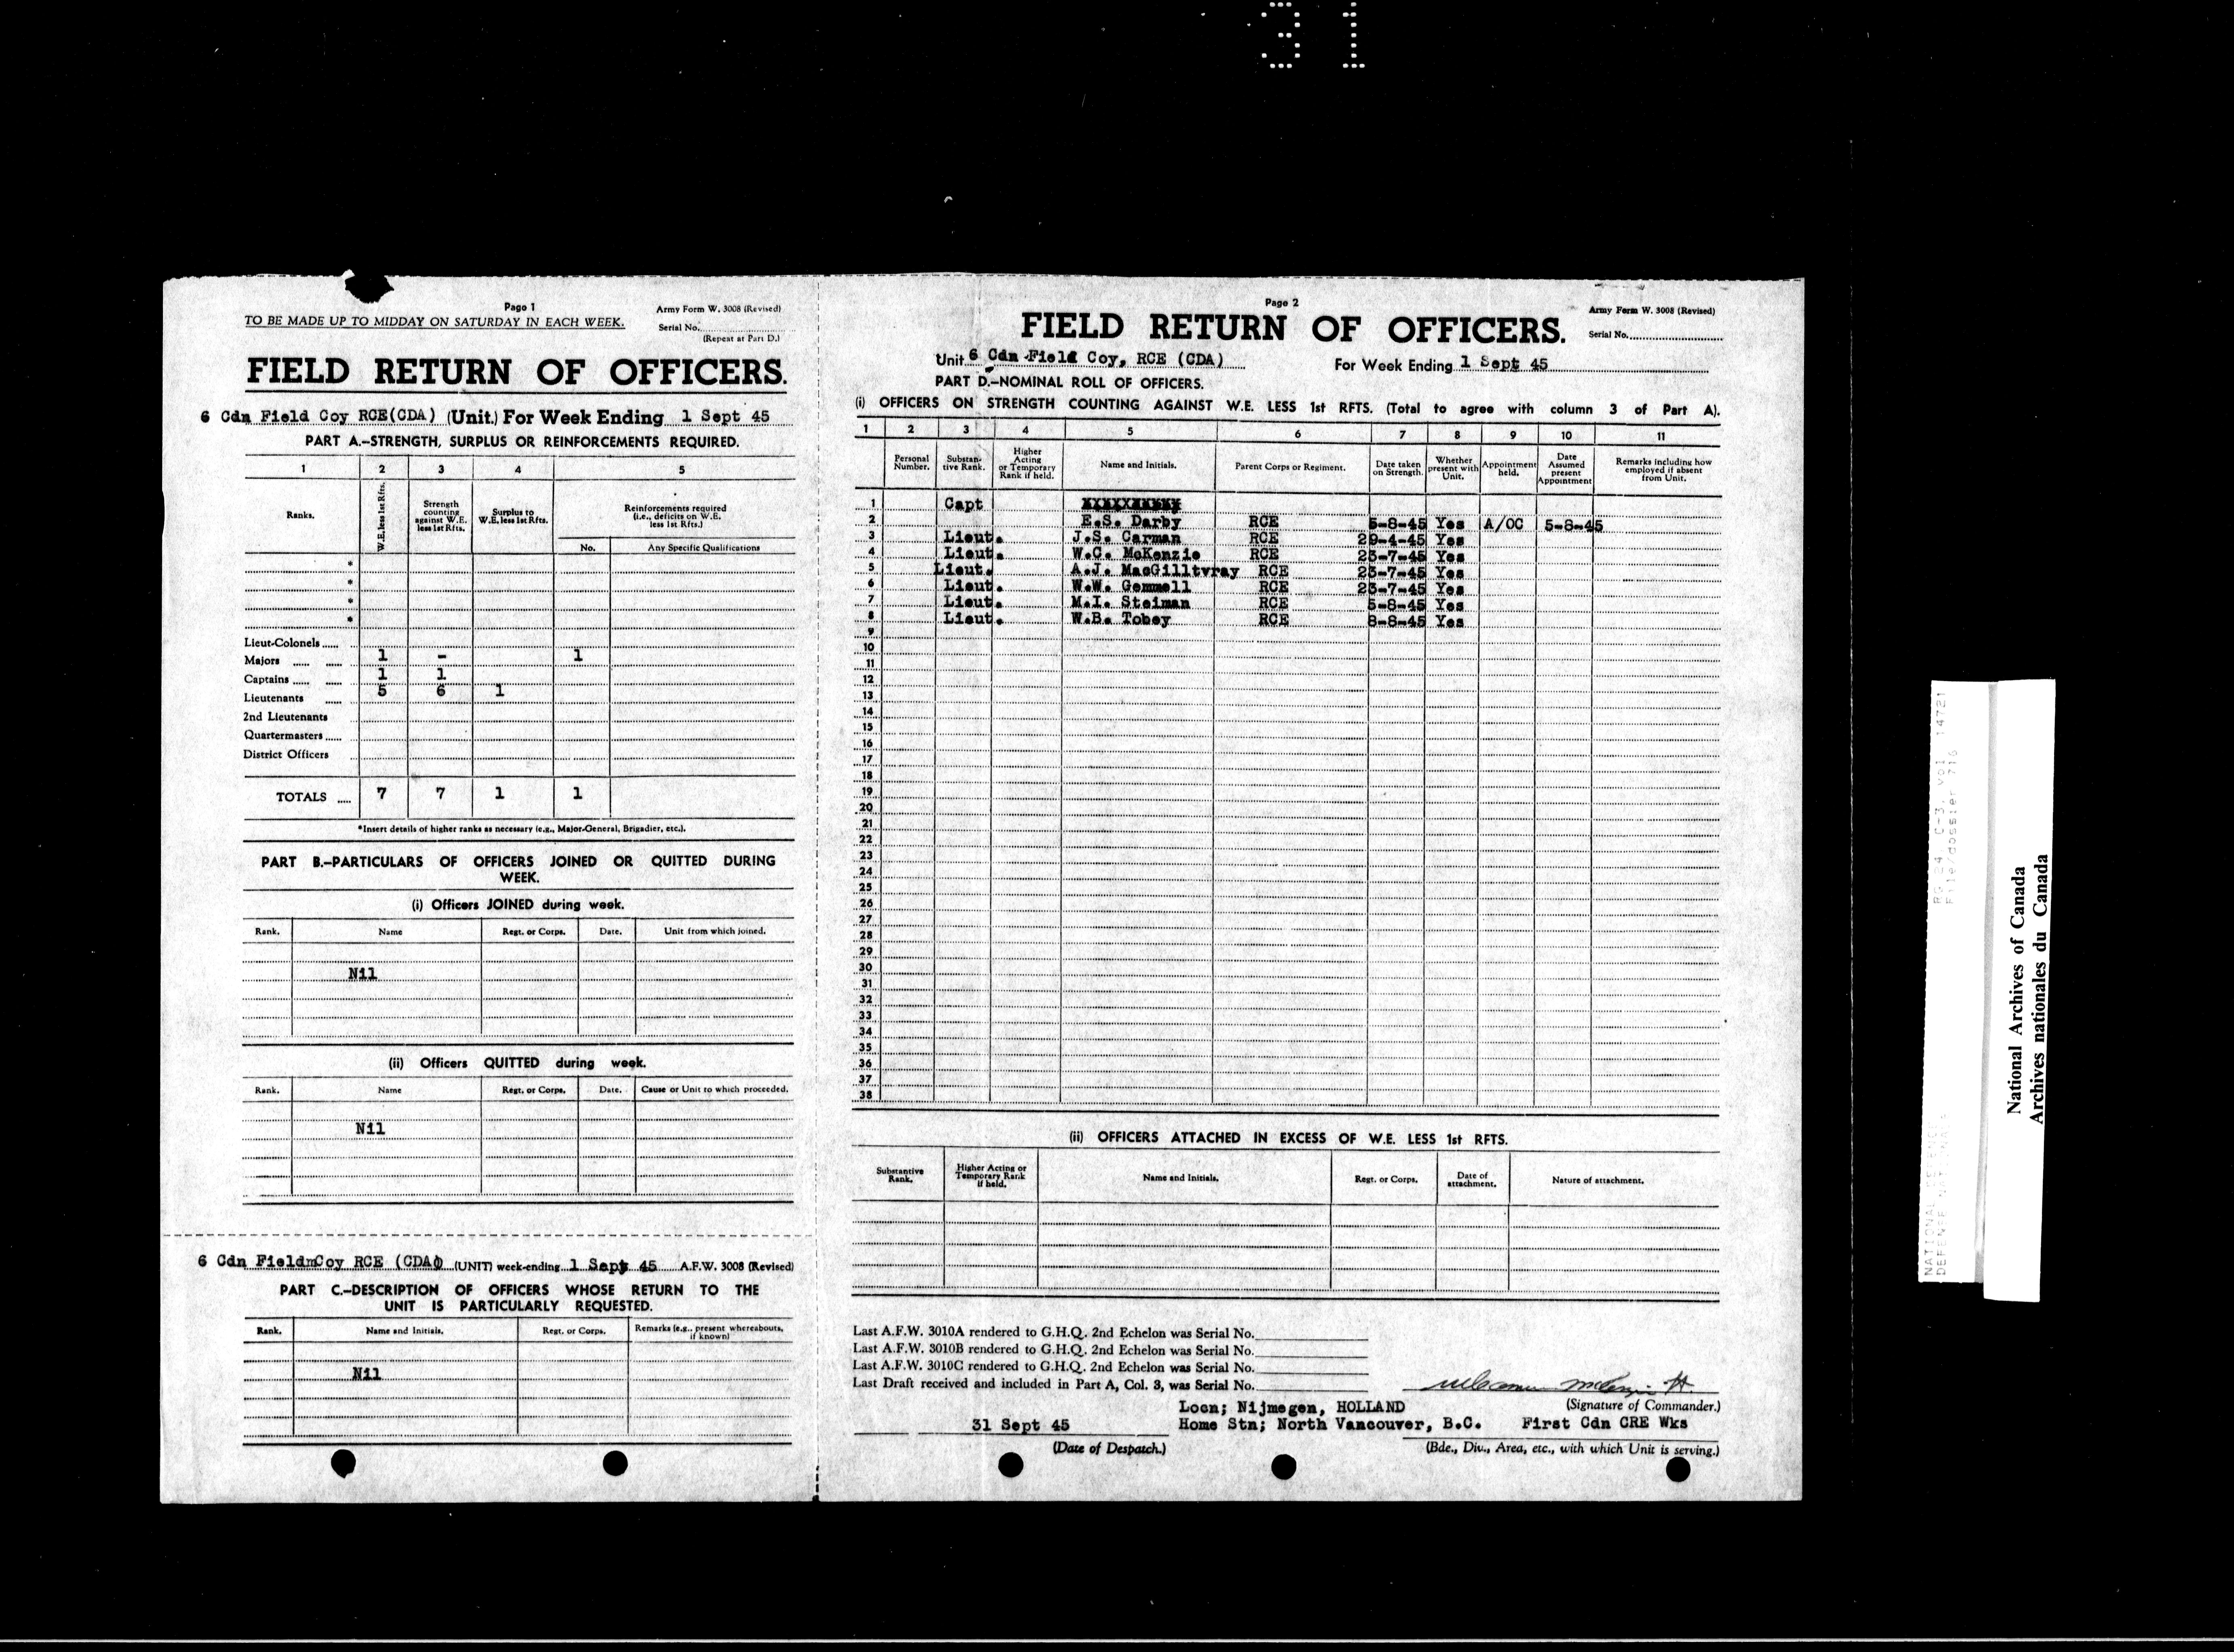 31
Page 1
TO BE MADE UP TO MIDDAY ON SATURDAY IN EACH WEEK.
Army Form W. 3008 (Revised)
Serial No.
(Repeat at Part D.)
FIELD RETURN OF OFFICERS.
6 Cdn Field Coy RCE(CDA) (Unit.) For Week Ending 1 Sept 45
PART A.-STRENGTH, SURPLUS OR REINFORCEMENTS REQUIRED.
1 2 3 4 5
Ranks. W.E. less 1st Rfts. Strength counting against W.E. less 1st Rfts. Surplus to W.E. less 1st Rfts. Reinforcements required (i.e., deficits on W.E. less 1st Rfts.)
No. Any Specific Qualifications
*
*
*
*
Lieut-Colonels
Majors 1 - 1
Captains 1 1
Lieutenants 5 6 1
2nd Lieutenants
Quartermasters
District Officers
TOTALS 7 7 1 1
*Insert details of higher ranks as necessary (e.g., Major-General, Brigadier, etc.).
PART B.-PARTICULARS OF OFFICERS JOINED OR QUITTED DURING
WEEK.
(i) Officers JOINED during week.
Rank. Name Regt. or Corps. Date. Unit from which joined.
Nil
(ii) Officers QUITTED during week.
Rank. Name Regt. or Corps. Date. Cause or Unit to which proceeded.
Nil
6 Cdn FieldmCoy RCE (CDA) (UNIT) week-ending 1 Sept 45 A.F.W. 3008 (Revised)
PART C.-DESCRIPTION OF OFFICERS WHOSE RETURN TO THE
UNIT IS PARTICULARLY REQUESTED.
Rank. Name and Initials. Regt. or Corps. Remarks (e.g., present whereabouts, if known)
Nil
Page 2
Army Form W. 3008 (Revised)
FIELD RETURN OF OFFICERS.
Serial No.
Unit 6 Cdn Field Coy, RCE (CDA) For Week Ending 1 Sept 45
PART D.-NOMINAL ROLL OF OFFICERS.
(i) OFFICERS ON STRENGTH COUNTING AGAINST W.E. LESS 1st RFTS. (Total to agree with column 3 of Part A).
1 2 3 4 5 6 7 8 9 10 11
Personal Number. Substantive Rank. Higher Acting or Temporary Rank if held. Name and Initials. Parent Corps or Regiment. Date taken on Strength. Whether present with Unit. Appointment held. Date Assumed present Appointment Remarks including how employed if absent from Unit.
1 Capt
2 E.S. Darby RCE 5-8-45 Yes A/OC 5-8-45
3 Lieut. J.S. Carman RCE 29-4-45 Yes
4 Lieut. W.C. McKenzie RCE 23-7-45 Yes
5 Lieut. A.J. MacGilltvray RCE 23-7-45 Yes
6 Lieut. W.W. Gemmell RCE 23-7-45 Yes
7 Lieut. M.I. Steiman RCE 5-8-45 Yes
8 Lieut. W.B. Tobey RCE 8-8-45 Yes
9
10
11
12
13
14
15
16
17
18
19
20
21
22
23
24
25
26
27
28
29
30
31
32
33
34
35
36
37
38
(ii) OFFICERS ATTACHED IN EXCESS OF W.E. LESS 1st RFTS.
Substantive Rank. Higher Acting or Temporary Rank if held. Name and Initials. Regt. or Corps. Date of attachment. Nature of attachment.
Last A.F.W. 3010A rendered to G.H.Q. 2nd Echelon was Serial No.
Last A.F.W. 3010B rendered to G.H.Q. 2nd Echelon was Serial No.
Last A.F.W. 3010C rendered to G.H.Q. 2nd Echelon was Serial No.
Last Draft received and included in Part A, Col. 3, was Serial No.
Locn; Nijmegen, HOLLAND (Signature of Commander.)
31 Sept 45 Home Stn; North Vancouver, B.C. First Cdn CRE Wks
(Date of Despatch.) (Bde., Div., Area, etc., with which Unit is serving.)
RG 24, C-3, vol. 14721
File/dossier 716
National Archives of Canada
Archives nationales du Canada